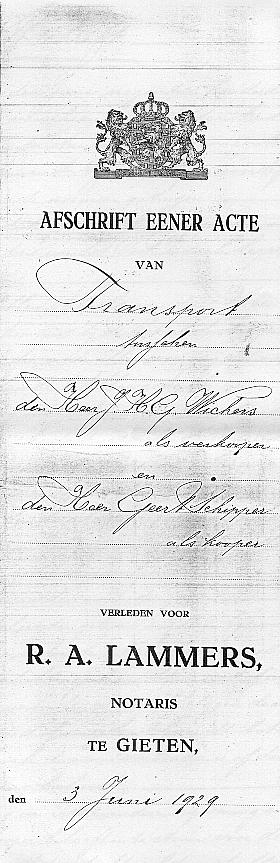 AFSCHRIFT EENER ACTE
VAN
Transport
tusschen
den Heer J H G Wichers
als verkooper
en
den Heer Geert Schipper
als kooper
VERLEDEN VOOR
R. A. LAMMERS,
NOTARIS
TE GIETEN,
den 3 Juni 1929